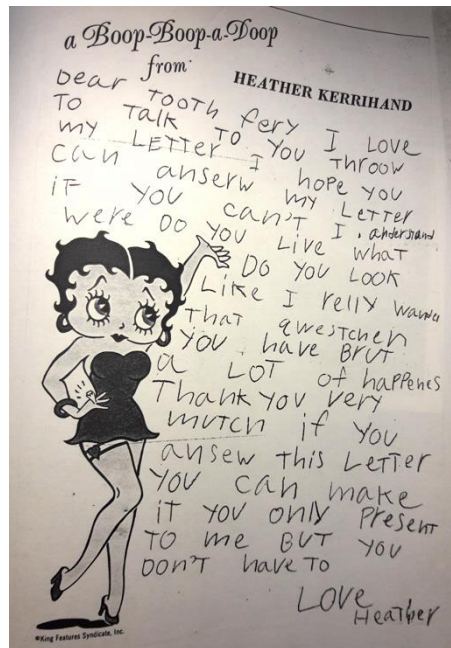 a Boop-Boop-a-Doop
from
HEATHER KERRIHAND
Dear Tooth fery I Love
To Talk To You Throow
my LETTER I hope you
can anserw my Letter
iF you can't I. anderstand
were Do you Live what
Do you Look
Like I relly wander
That qwestchen
you have Brut
a LOT of happenes
Thank you very
mutch if you
ansew this Letter
you can make
it you only Present
TO me BUT you
Don't have to
LOVE
Heather
©King Features Syndicate, Inc.